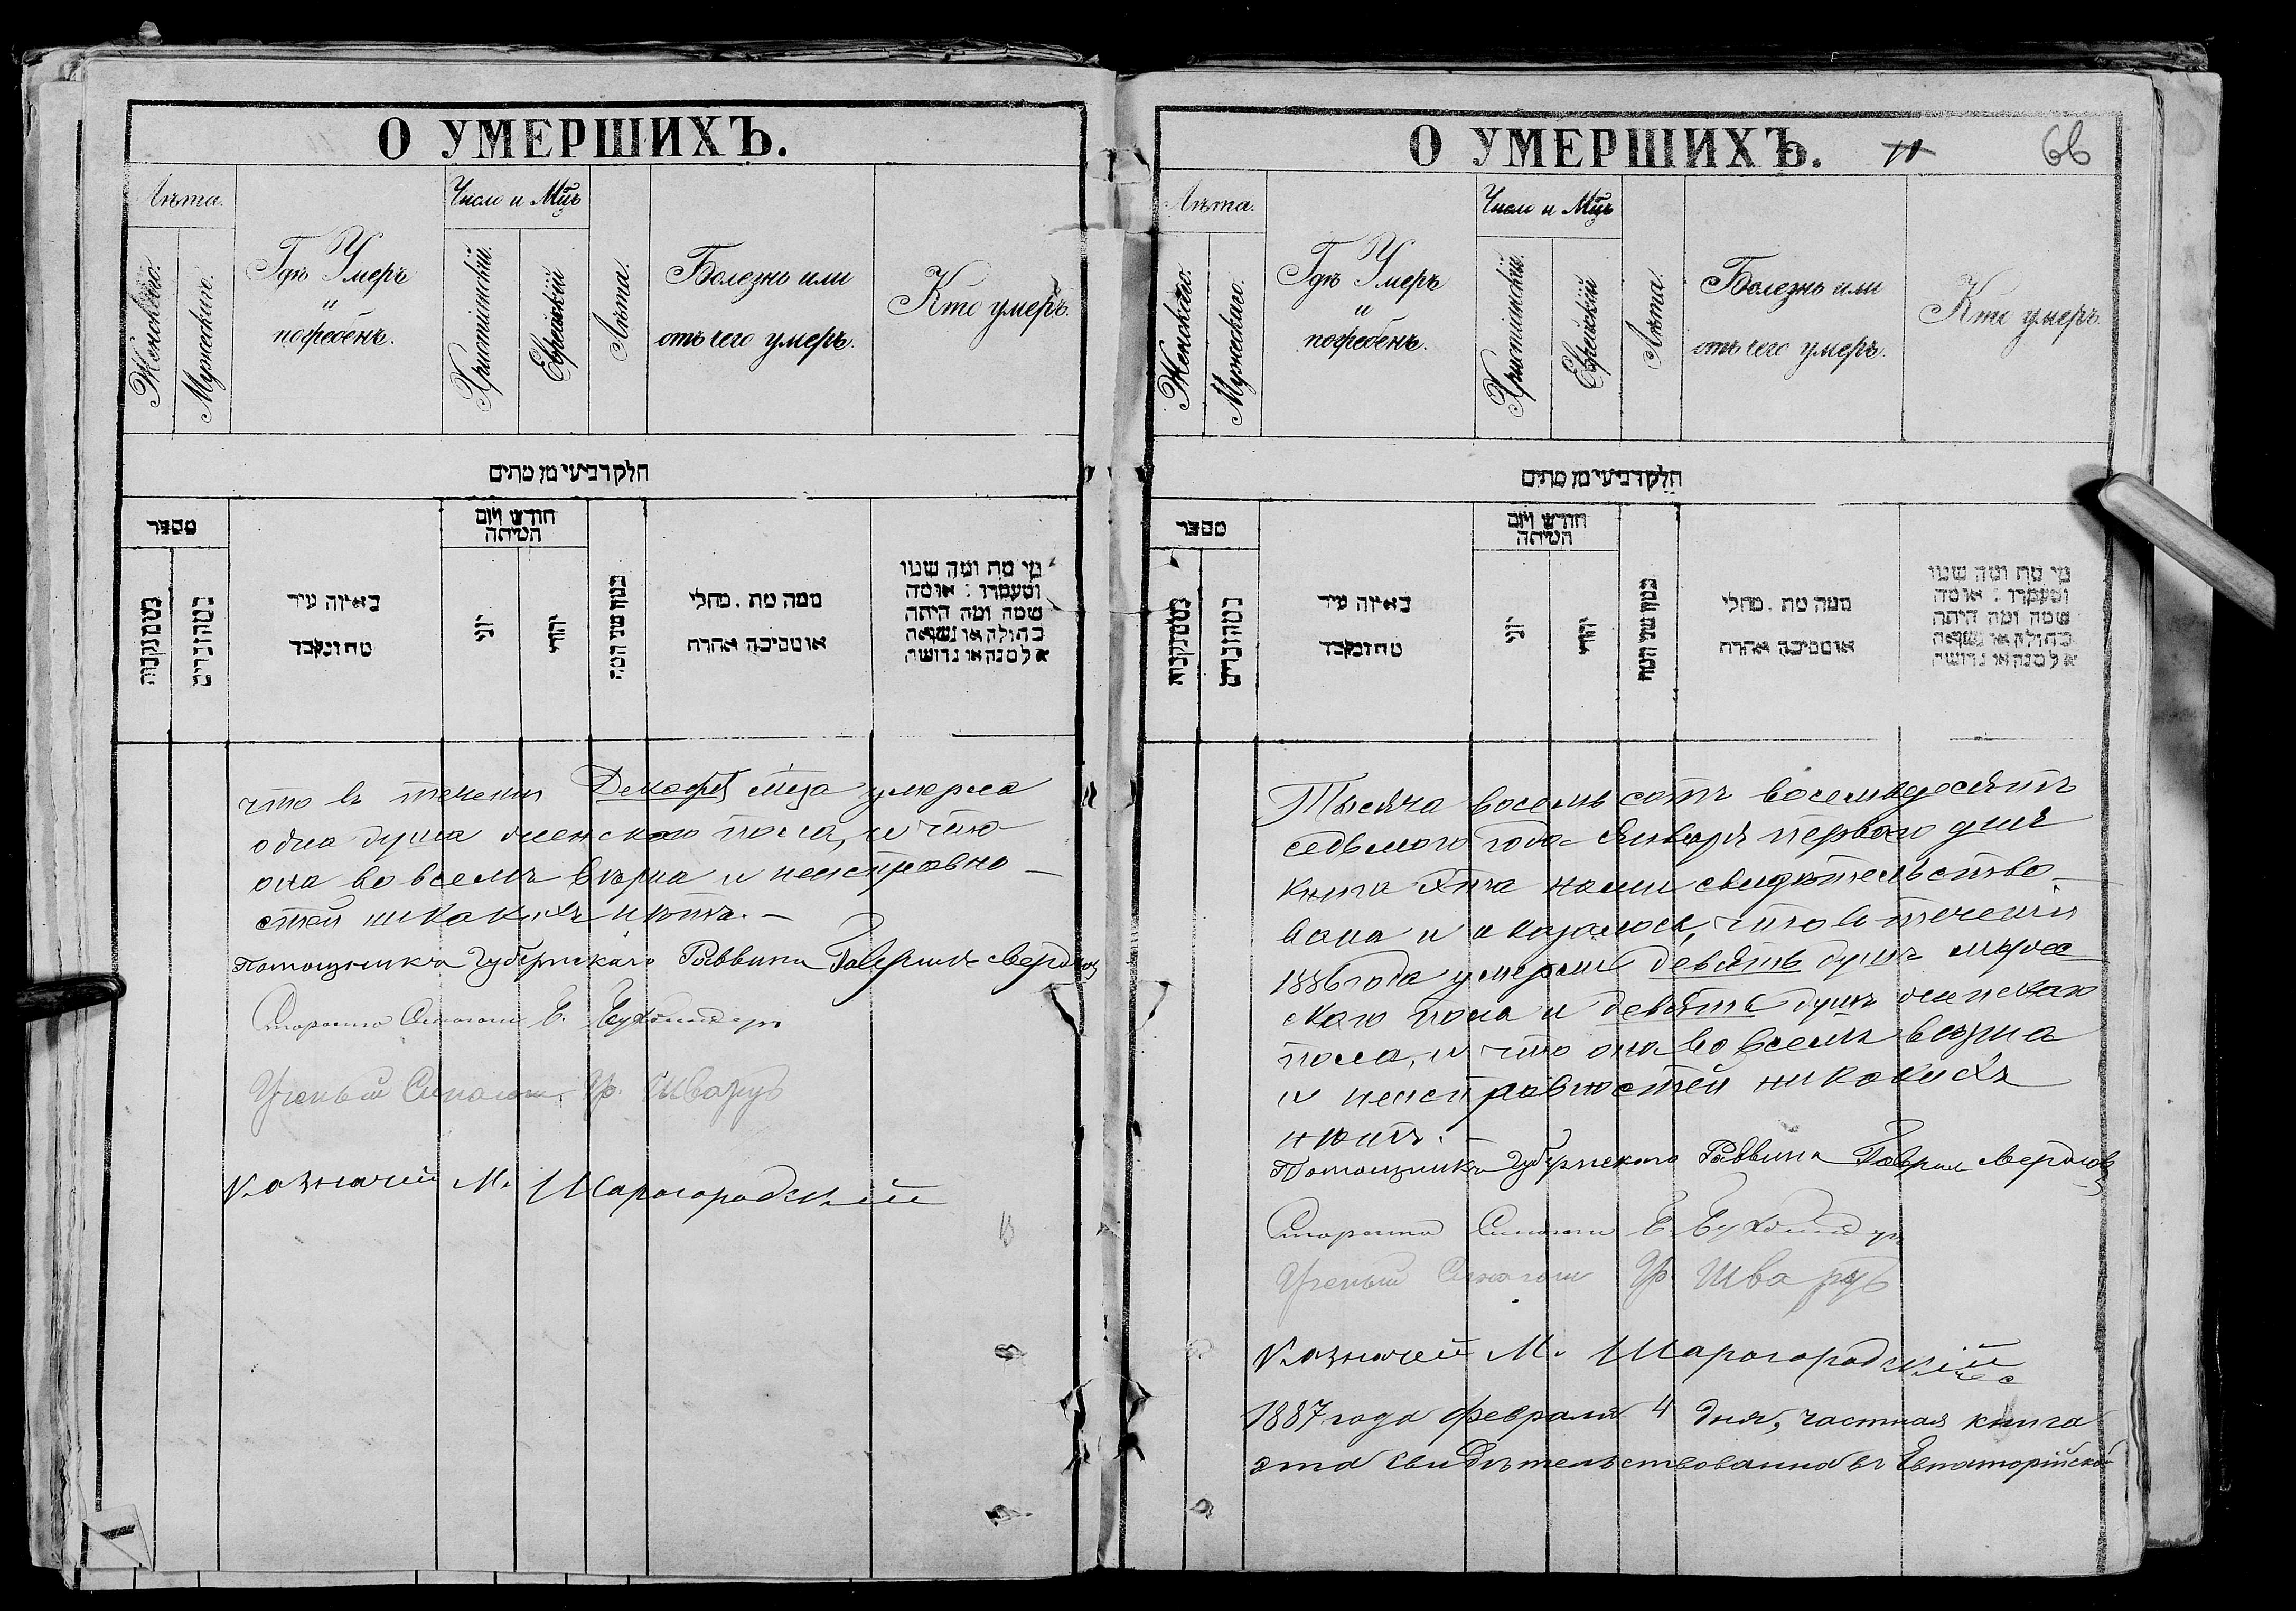 О УМЕРШИХЪ.
Лѣта.
Женскаго.
Мужескаго.
Гдѣ Умеръ
и
погребенъ.
Число и Мцъ
Христіанскій.
Еврейскій
Лѣта.
Болезнь или
отъ чего умеръ.
Кто умеръ.
חלק רביעי מן מתים
מספר
באיזה עיר
מת ונקבר
חודש ויום
המיתה
יוני
יהודי
ממה מת . מחלי
או מסיבה אחרת
מי מת ומה שמו
ומעמדו : או מה
שמה ומה היתה
בתולה או נשואה
אלמנה או גרושה
что въ теченіи Декабря мца умерла
одна душа женскаго пола, и что
она во всемъ вѣрна и неисправно-
стей никакихъ нѣтъ. —
Помощникъ Губернскаго Раввина Гавріилъ Свердловъ
Староста Синагоги Е. Бухбиндеръ
Ученый Синагоги Гр. Шварцъ
Казначей М. Шарогородскій
О УМЕРШИХЪ.
11
66
Лѣта.
Женскаго.
Мужескаго.
Гдѣ Умеръ
и
погребенъ.
Число и Мцъ
Христіанскій.
Еврейскій
Лѣта.
Болезнь или
отъ чего умеръ.
Кто умеръ.
חלק רביעי מן מתים
מספר
באיזה עיר
מת ונקבר
חודש ויום
המיתה
יוני
יהודי
ממה מת . מחלי
או מסיבה אחרת
מי מת ומה שמו
ומעמדו : או מה
שמה ומה היתה
בתולה או נשואה
אלמנה או גרושה
Тысяча восемь сотъ восемьдесятъ
седьмого года Января перваго дня
книга эта нами свидѣтельство-
вана и оказалось, что въ теченіи
1886 года умерли девять душъ мужес
скаго пола и девять душъ женскаго
пола, и что она во всемъ вѣрна
и неисправностей никакихъ
нѣтъ. —
Помощникъ Губернскаго Раввина Гавріилъ Свердловъ
Староста Синагоги Е. Бухбиндеръ
Ученый Синагоги Гр. Шварцъ
Казначей М. Шарогородскій
1887 года февраля 4 дня, частная книга
эта свидѣтельствованна въ Евпаторійской